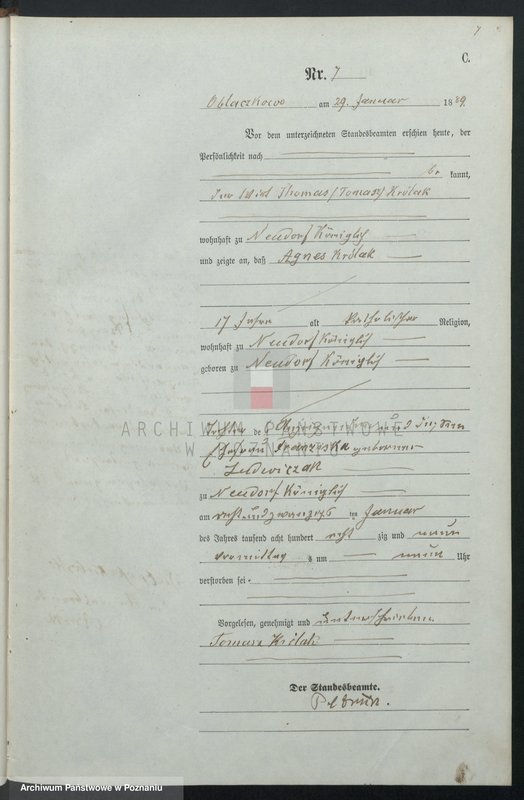 7
C.
Nr. 7
Obłaczkowo am 29 Januar 1889.
Vor dem unterzeichneten Standesbeamten erschien heute, der
Persönlichkeit nach
be kannt,
der Wirt Thomas (Tomasz) Królak
wohnhaft zu Neudorf Königlich
und zeigte an, daß Agnes Królak
17 Jahre alt katholischer Religion,
wohnhaft zu Neudorf Königlich
geboren zu Neudorf Königlich
Tochter des Anzeigenden und dessen
Ehefrau Franziska geborene
Ludwiczak
zu Neudorf Königlich
am acht und zwanzigsten Januar
des Jahres tausend acht hundert acht zig und neun
vormittags um neun Uhr
verstorben sei.
Vorgelesen, genehmigt und unterschrieben
Tomasz Królak
Der Standesbeamte.
ARCHIWUM PAŃSTWOWE
W POZNANIU
Archiwum Państwowe w Poznaniu